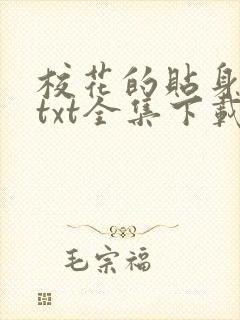 校花的貼身
txt全集下載
毛宗福